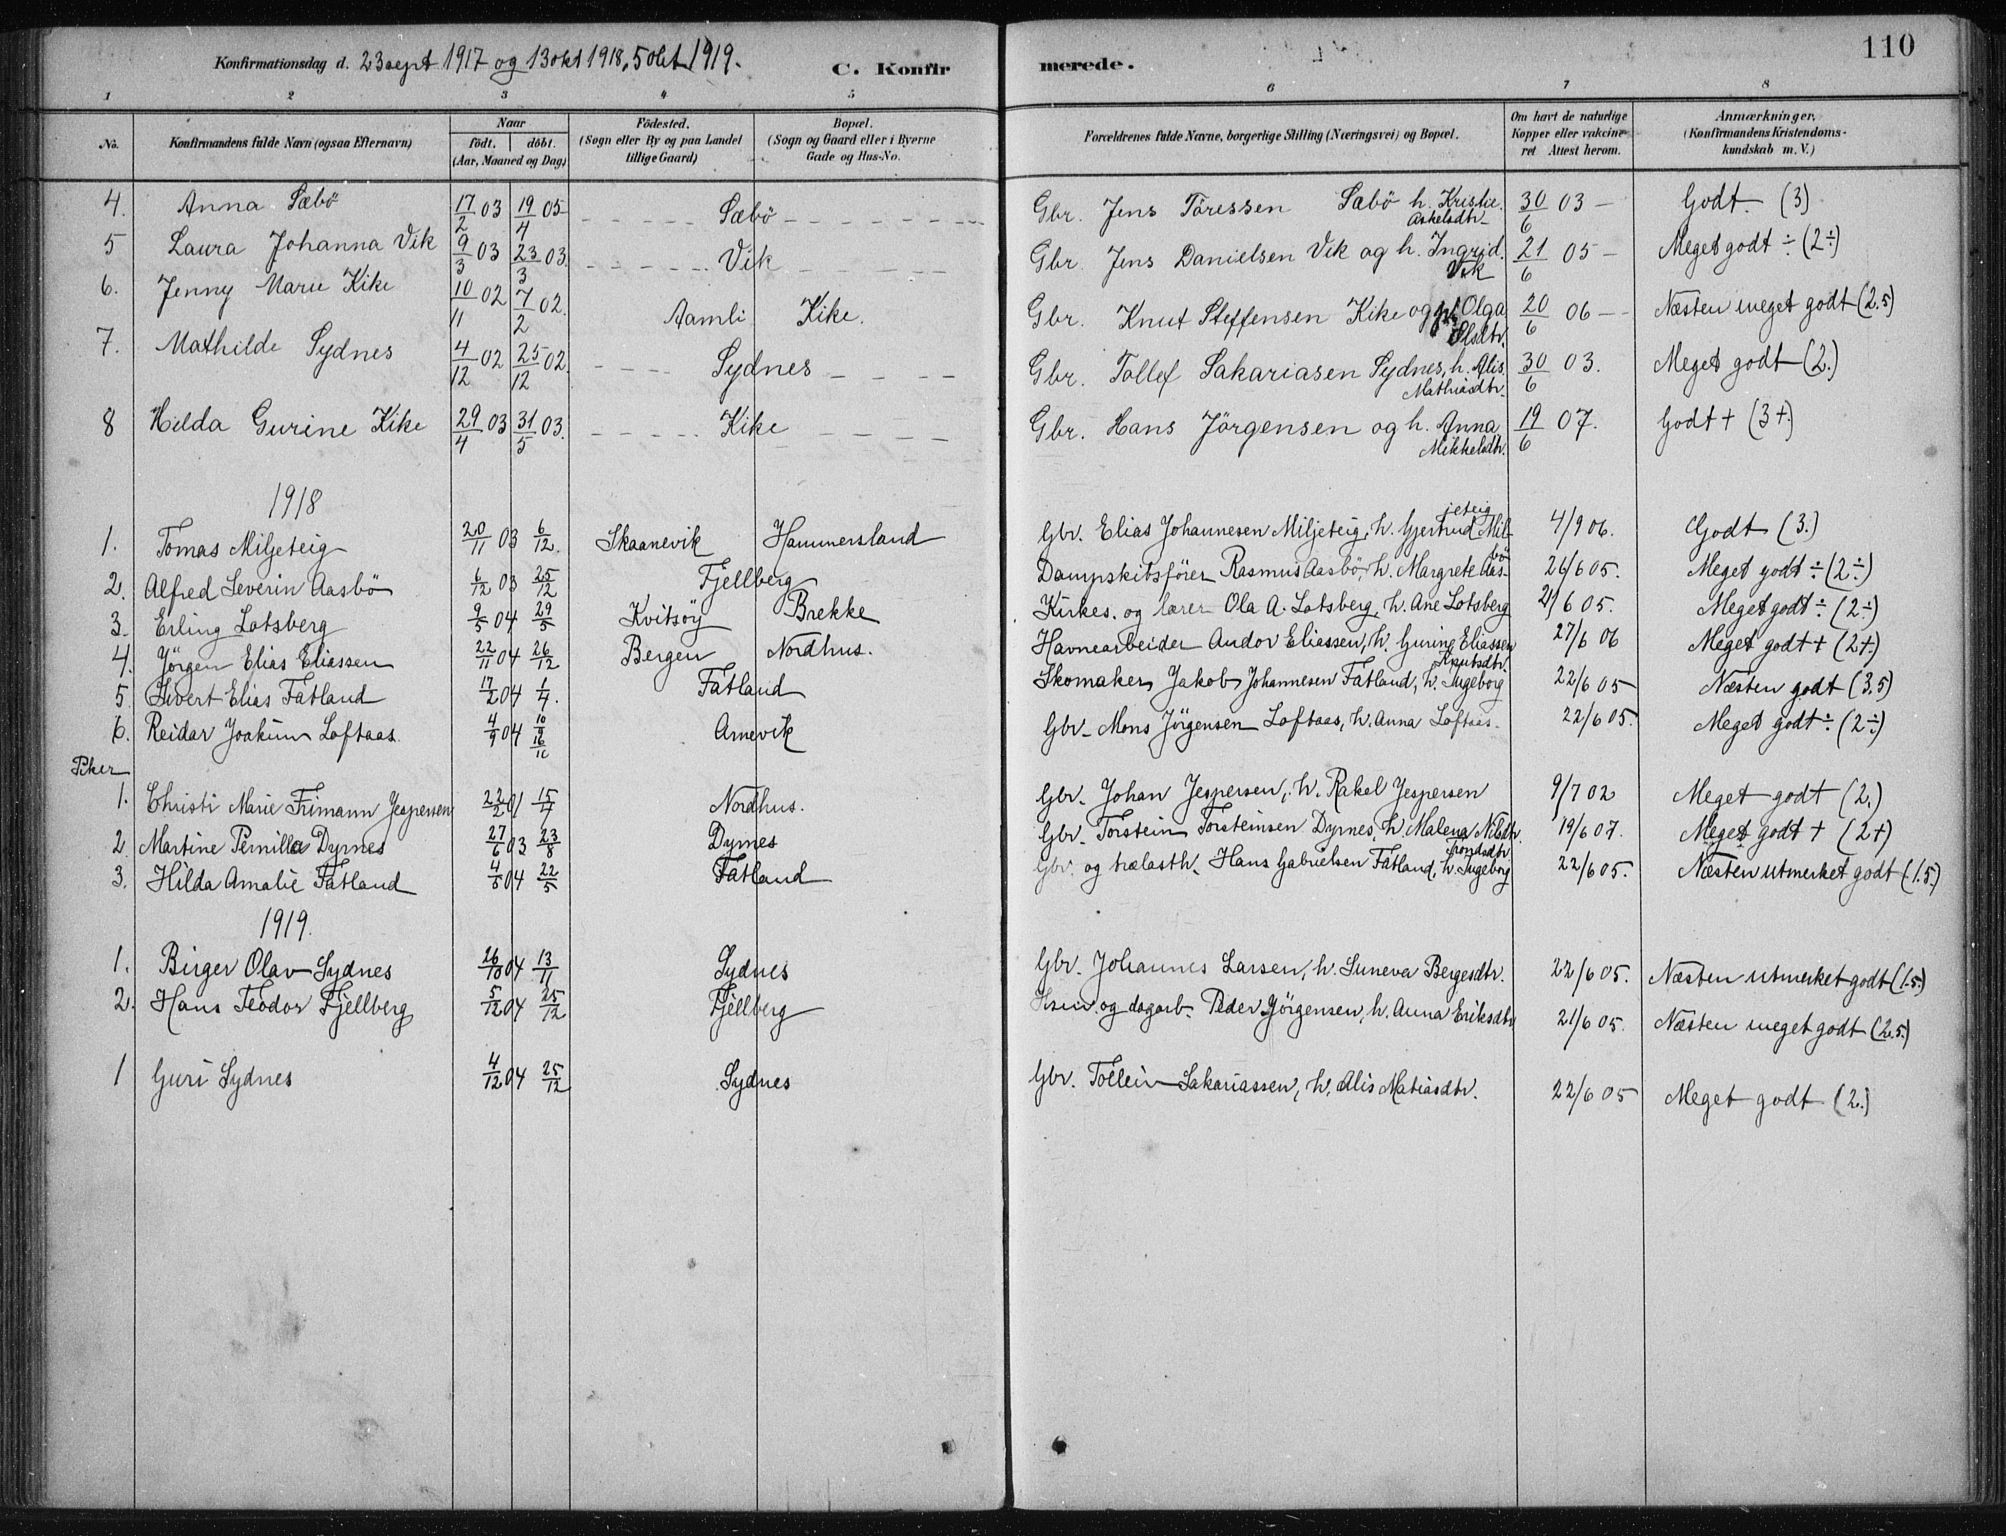 110
Konfirmationsdag d. 23 sept 1917 og 13 okt 1918, 5 okt 1919. C. Konfirmerede.
1 2 3 4 5 6 7 8
No. Konfirmandens fulde Navn (ogsaa Efternavn) Naar født. døbt. (Aar, Maaned og Dag) Fødested. (Sogn eller By og paa Landet tillige Gaard) Bopæl. (Sogn og Gaard eller i Byerne Gade og Hus-No. Forældrenes fulde Navne, borgerlige Stilling (Næringsvei) og Bopæl. Om havt de naturlige Kopper eller vakcineret Attest herom. Anmærkninger. (Konfirmandens Kristendomskundskab m. V.)
4. Anna Sæbö 17/2 03 19/4 05 Sæbö Gbr. Jens Töressen Sæbö h. Kristie Askelsdtr 30/6 03 – Godt. (3)
5 Laura Johanna Vik 9/3 03 23/3 03. Vik Gbr. Jens Danielsen Vik og h. Ingrid. Vik 21/6 05 – Meget godt ÷ (2÷)
6. Jenny Marie Kike 10/11 02 7/2 02. Aamli Kike. Gbr. Knut Steffensen Kike og Olga Olsdtr. 20/6 06 – Næsten meget godt (2.5)
7. Mathilde Sydnes 4/12 02 25/12 02 Sydnes Gbr. Tollef Sakariasen Sydnes, h. Alis Mathiasdtr. 30/6 03. Meget godt (2.)
8 Hilda Gurine Kike 29/4 03 31/5 03. Kike Gbr. Hans Jörgensen og h. Anna Mikkelsdtr. 19/6 07. Godt + (3+)
1918
1. Tomas Miljeteig 20/11 03 6/12. Skaanevik Hammersland Gbr. Elias Johannesen Miljeteig, h. Gjertrud Miljeteig 4/9 06. Godt (3.)
2. Alfred Severin Aasbö 6/12 03 25/12 Fjellberg Dampskibsförer Rasmus Aasbö, h. Margrete Aasbö 26/6 05. Meget godt ÷ (2÷)
3. Erling Lotsberg 9/5 04 29/5 Kvitsöy Brekke Kirkes. og lærer Ola A. Lotsberg, h. Ane Lotsberg 21/6 05. Meget godt ÷ (2÷)
4. Jörgen Elias Eliassen 22/11 04 26/12 Bergen Nordhus. Havnearbeider Andor Eliassen, h. Gurine Eliassen 27/6 06 Meget godt + (2+)
5. Sivert Elias Fatland 17/2 04 1/4. Fatland Skomaker Jakob Johannesen Fatland, h. Ingeborg Knutsdtr. 22/6 05 Næsten godt (3.5)
6. Reidar Joakim Loftaas 4/9 04 10/9 16/10 Arnevik Gbr. Mons Jörgensen Loftaas, h. Anna Loftaas. 22/6 05. Meget godt ÷ (2÷)
Piker
1. Christi Marie Frimann Jespersen 22/2 01 15/4 Nordhus. Gbr. Johan Jespersen, h. Rakel Jespersen 9/7 02 Meget godt (2.)
2. Martine Pernilla Dyrnes 27/6 03 23/8 Dyrnes Gbr. Torstein Torsteinsen Dyrnes, h. Malena Nilsdtr. 19/6 07. Meget godt + (2+)
3. Hilda Amalie Fatland 4/5 04 22/5 Fatland Gbr. og trælasth. Hans Gabrielsen Fatland, h. Ingeborg Trondsdtr 22/6 05. Næsten utmerket godt (1.5)
1919.
1. Birger Olav Sydnes 26/10 04 13/11 Sydnes Gbr. Johannes Larsen, h. Suneva Bergesdtr. 22/6 05. Næsten utmerket godt (1.5)
2. Hans Teodor Fjellberg 5/12 04 25/12 Fjellberg Hsm. og dagarb. Peder Jörgensen, h. Anna Eriksdtr 21/6 05. Næsten meget godt (2.5.)
1 Guri Sydnes 4/12 04 25/12 Sydnes Gbr. Tollein Sakariassen, h. Alis Matiasdtr. 22/6 05 Meget godt (2.)